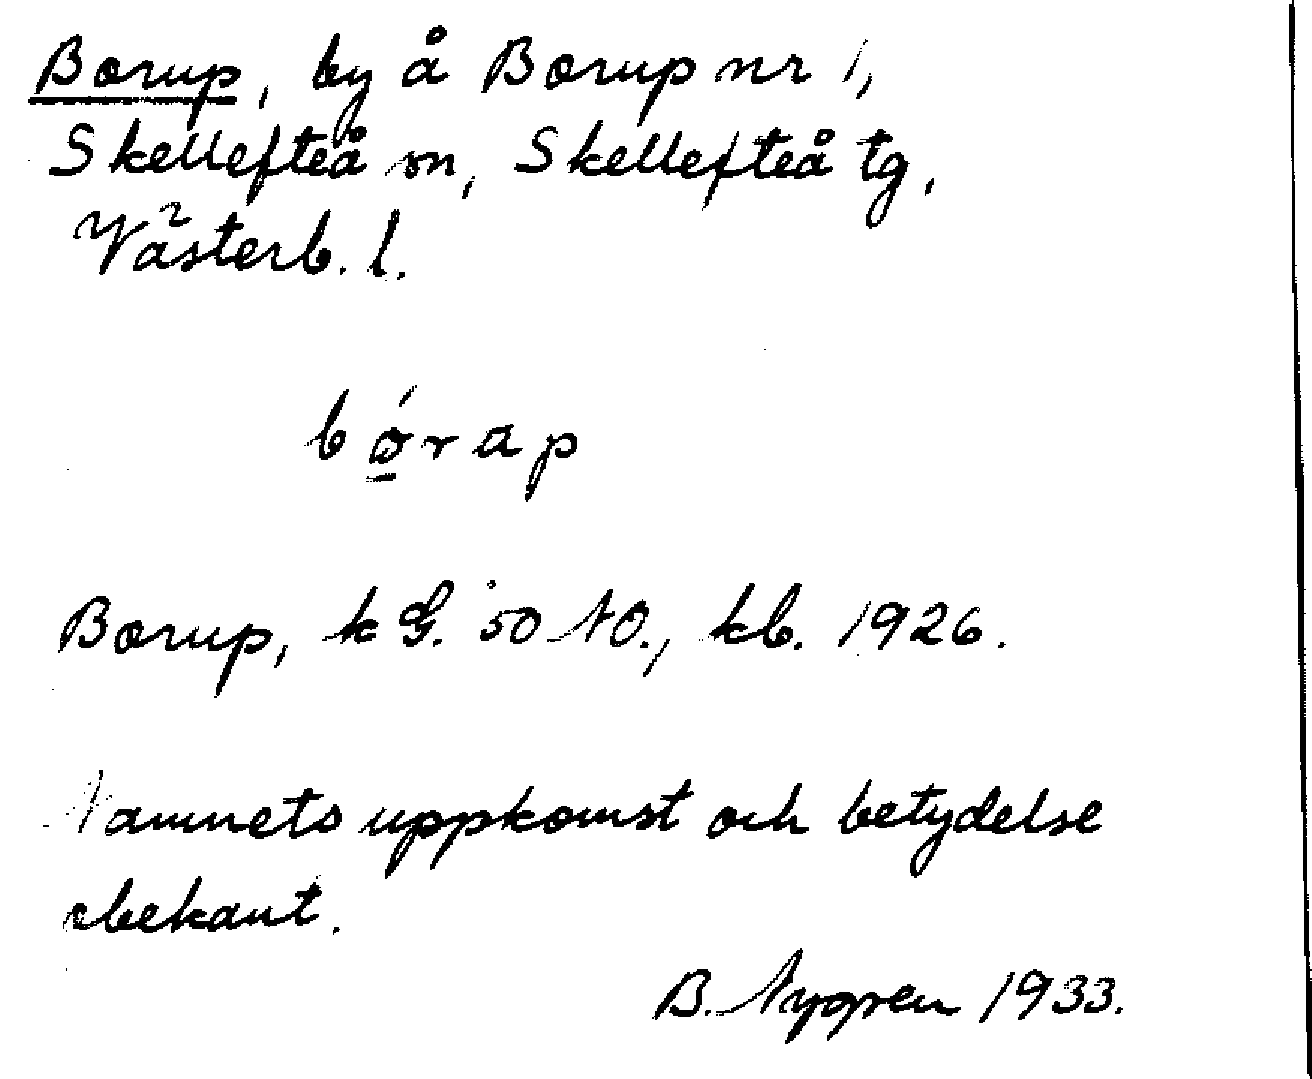 Borup, by å Borup nr 1,
Skellefteå sn, Skellefteå tg,
Västerb. l.
bó̲rap
Borup, kG. 50 NO., kb. 1926.
Namnets uppkomst och betydelse
obekant.
B. Nygren 1933.